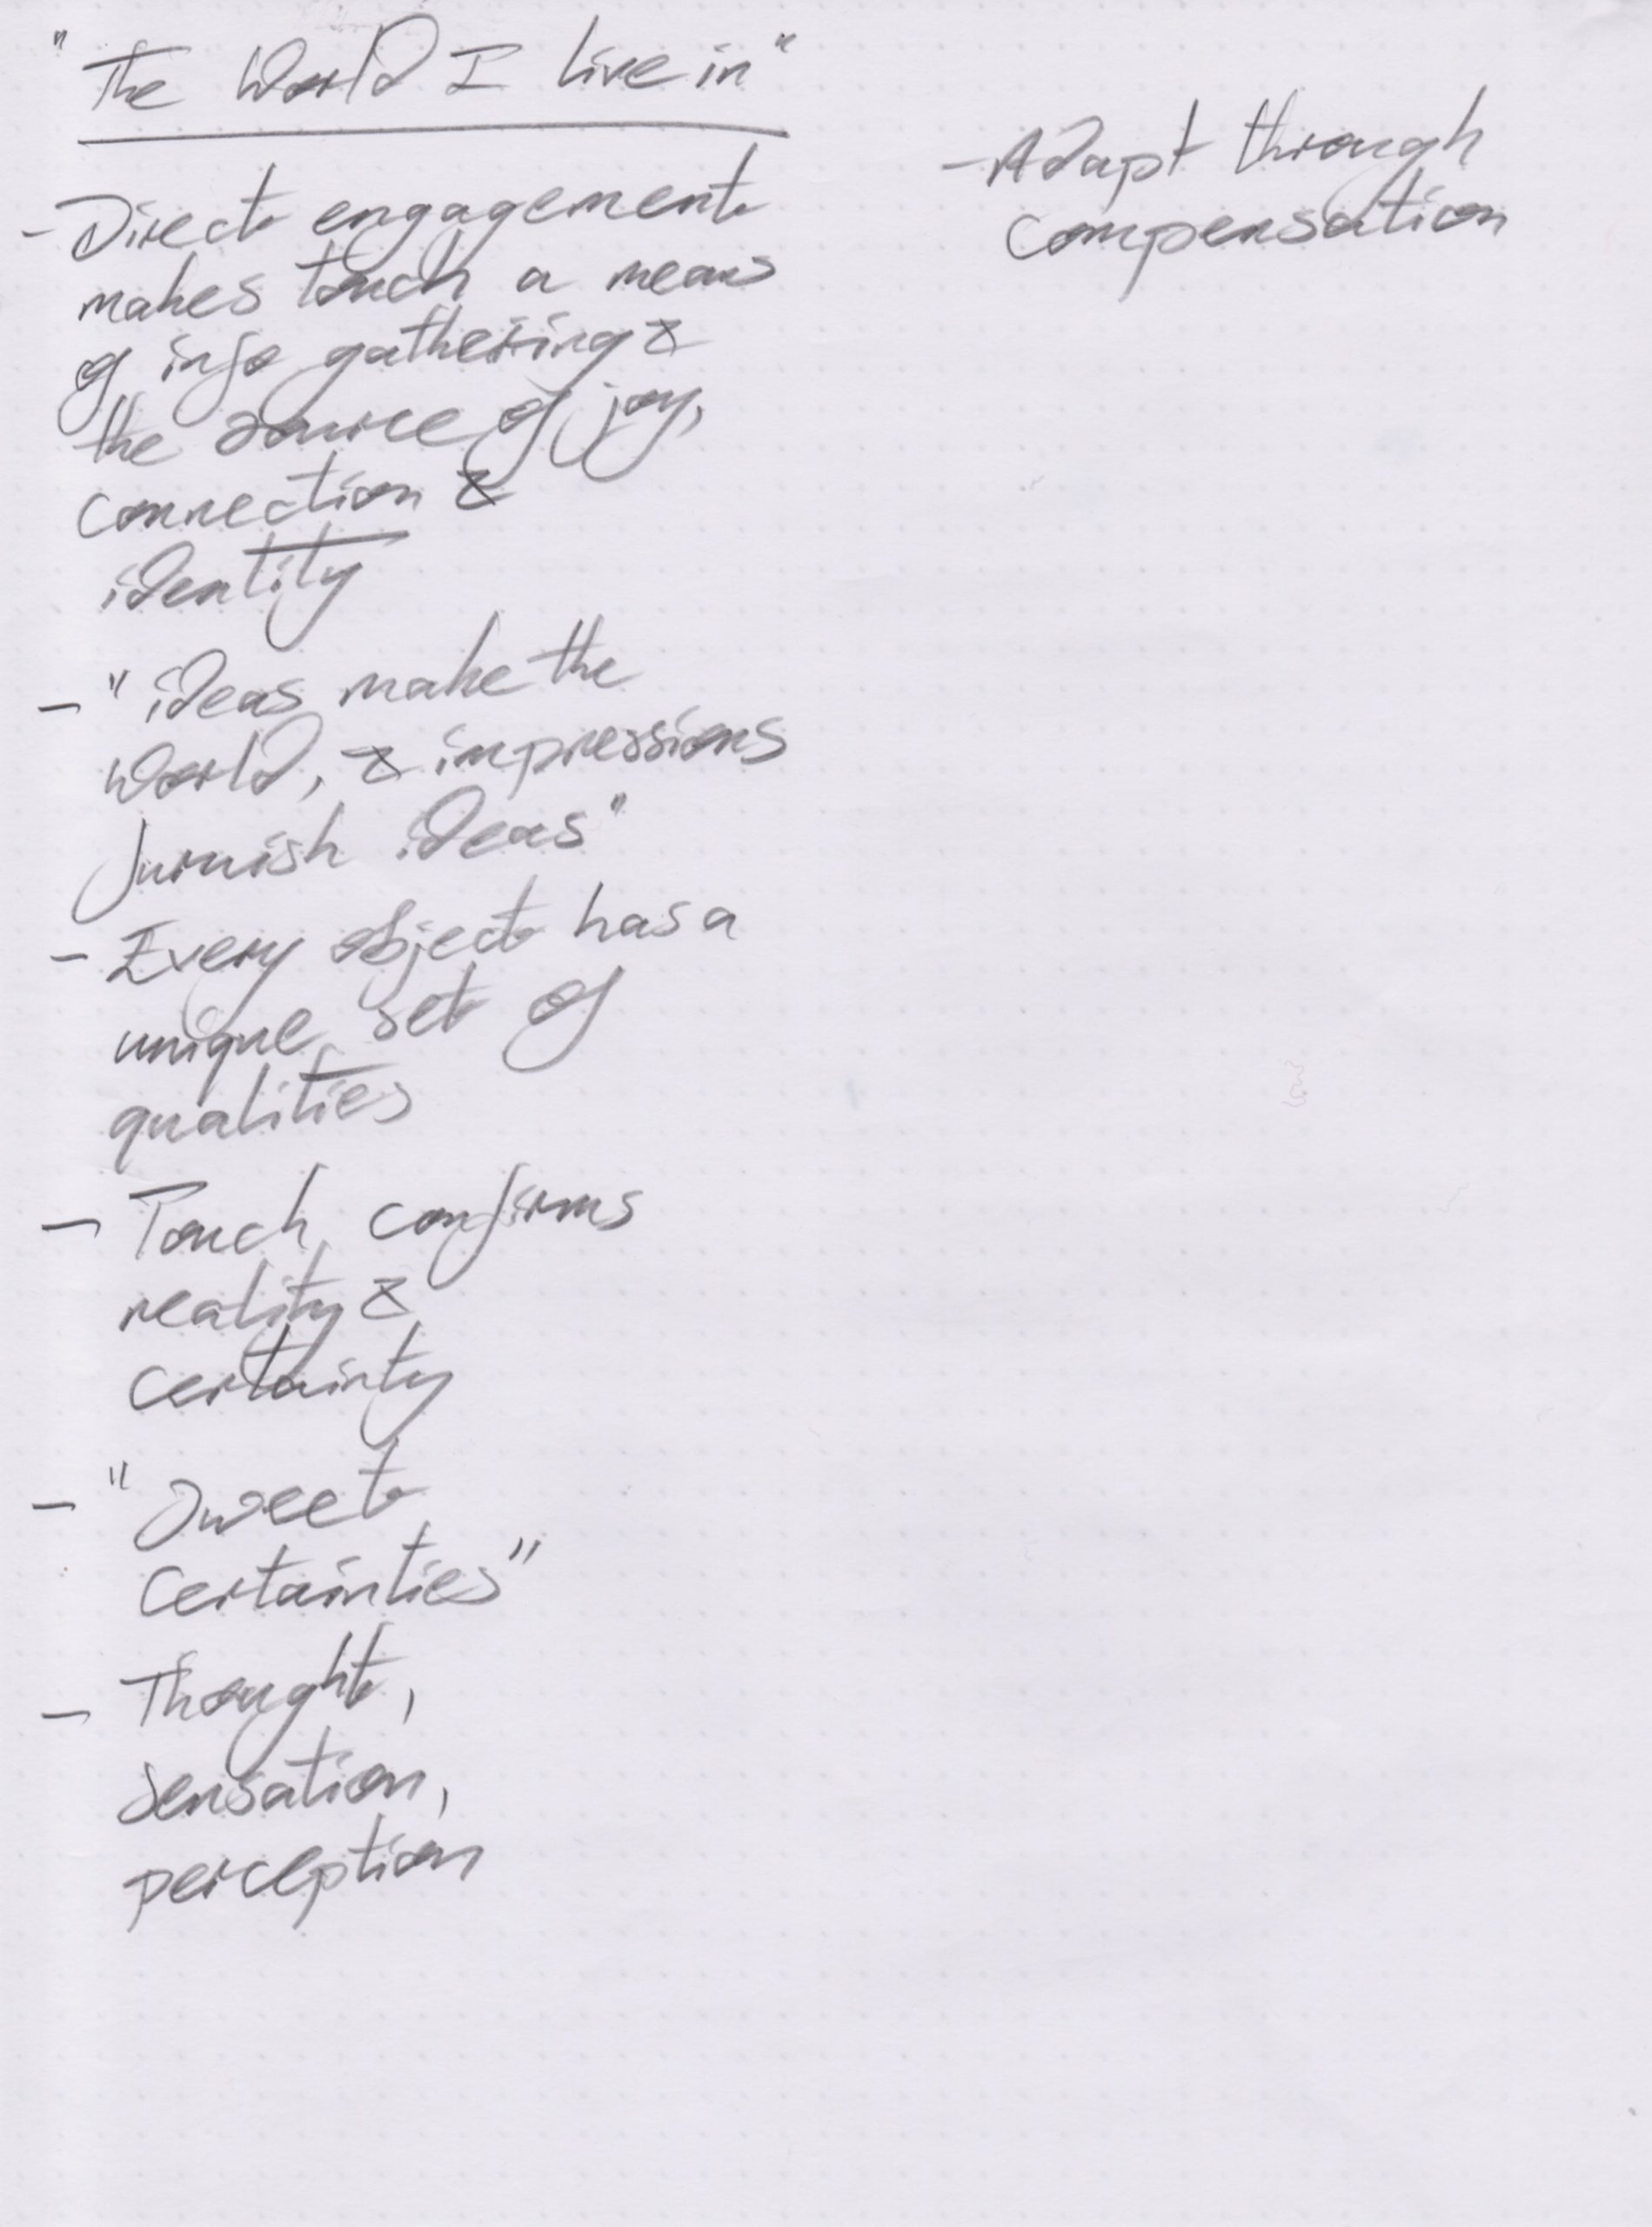 "The World I live in"
- Direct engagement
makes touch a means
of info gathering &
the source of joy,
connection &
identity
- "ideas make the
world, & impressions
furnish ideas"
- Every object has a
unique set of
qualities
- Touch confirms
reality &
certainty
- "Sweet
Certainties"
- Thought,
sensation,
perception
- Adapt through
compensation